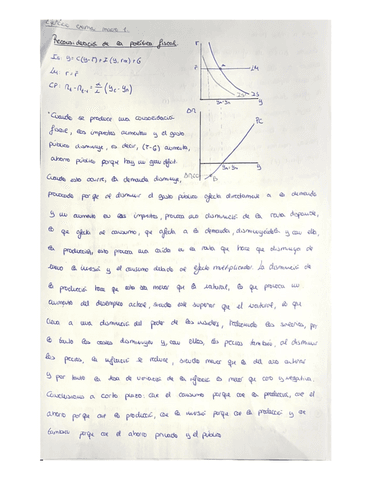 Reconsideració de la política fiscal
IS: Y = C(Y-T) + I(Y, r+x) + G
LM: r = r̄
CP: π_t - π_t-1 = α/L (Y_t - Y_n)
r
r̄
a
LM
IS
IS
Y_n - Y_n
Y
Δπ
PC
Y
Δπ<0
b
"Cuando se produce una consolidació
fiscal, los impostos aumenten y el gasto
público disminuye, es decir, (T-G) aumenta,
ahorro público porque hay un gran dèficit.
Cuando esto ocurre, la demanda disminuye,
provocado porque al disminuir el gasto público afecta directamente a la demanda
y un aumento en los impostos, provoca una disminució de la renta disponible,
lo que afecta al consumo, que afecta a la demanda, disminuyéndola y con ello,
la producció, esto provoca una caída en la renta que hace que disminuya de
nuevo la inversió y el consumo debido al efecto multiplicador. La disminució de
la producció hace que esta sea menor que la natural, lo que provoca un
aumento del desempleo actual, siendo este superior que el natural, lo que
lleva a una disminució del poder de los
por
lo tanto los costes disminuyen y, con ellos, los precios también, al disminuir
los precios, la inflació se reduce, siendo menor que la del año anterior
y por tanto la tasa de variació de la inflació es menor que cero y negativa.
Conclusiones a corto plazo: cae el consumo porque cae la producció, cae el
ahorro porque cae la producció, cae la inversió porque cae la producció y cae
porque cae el ahorro privado y el público